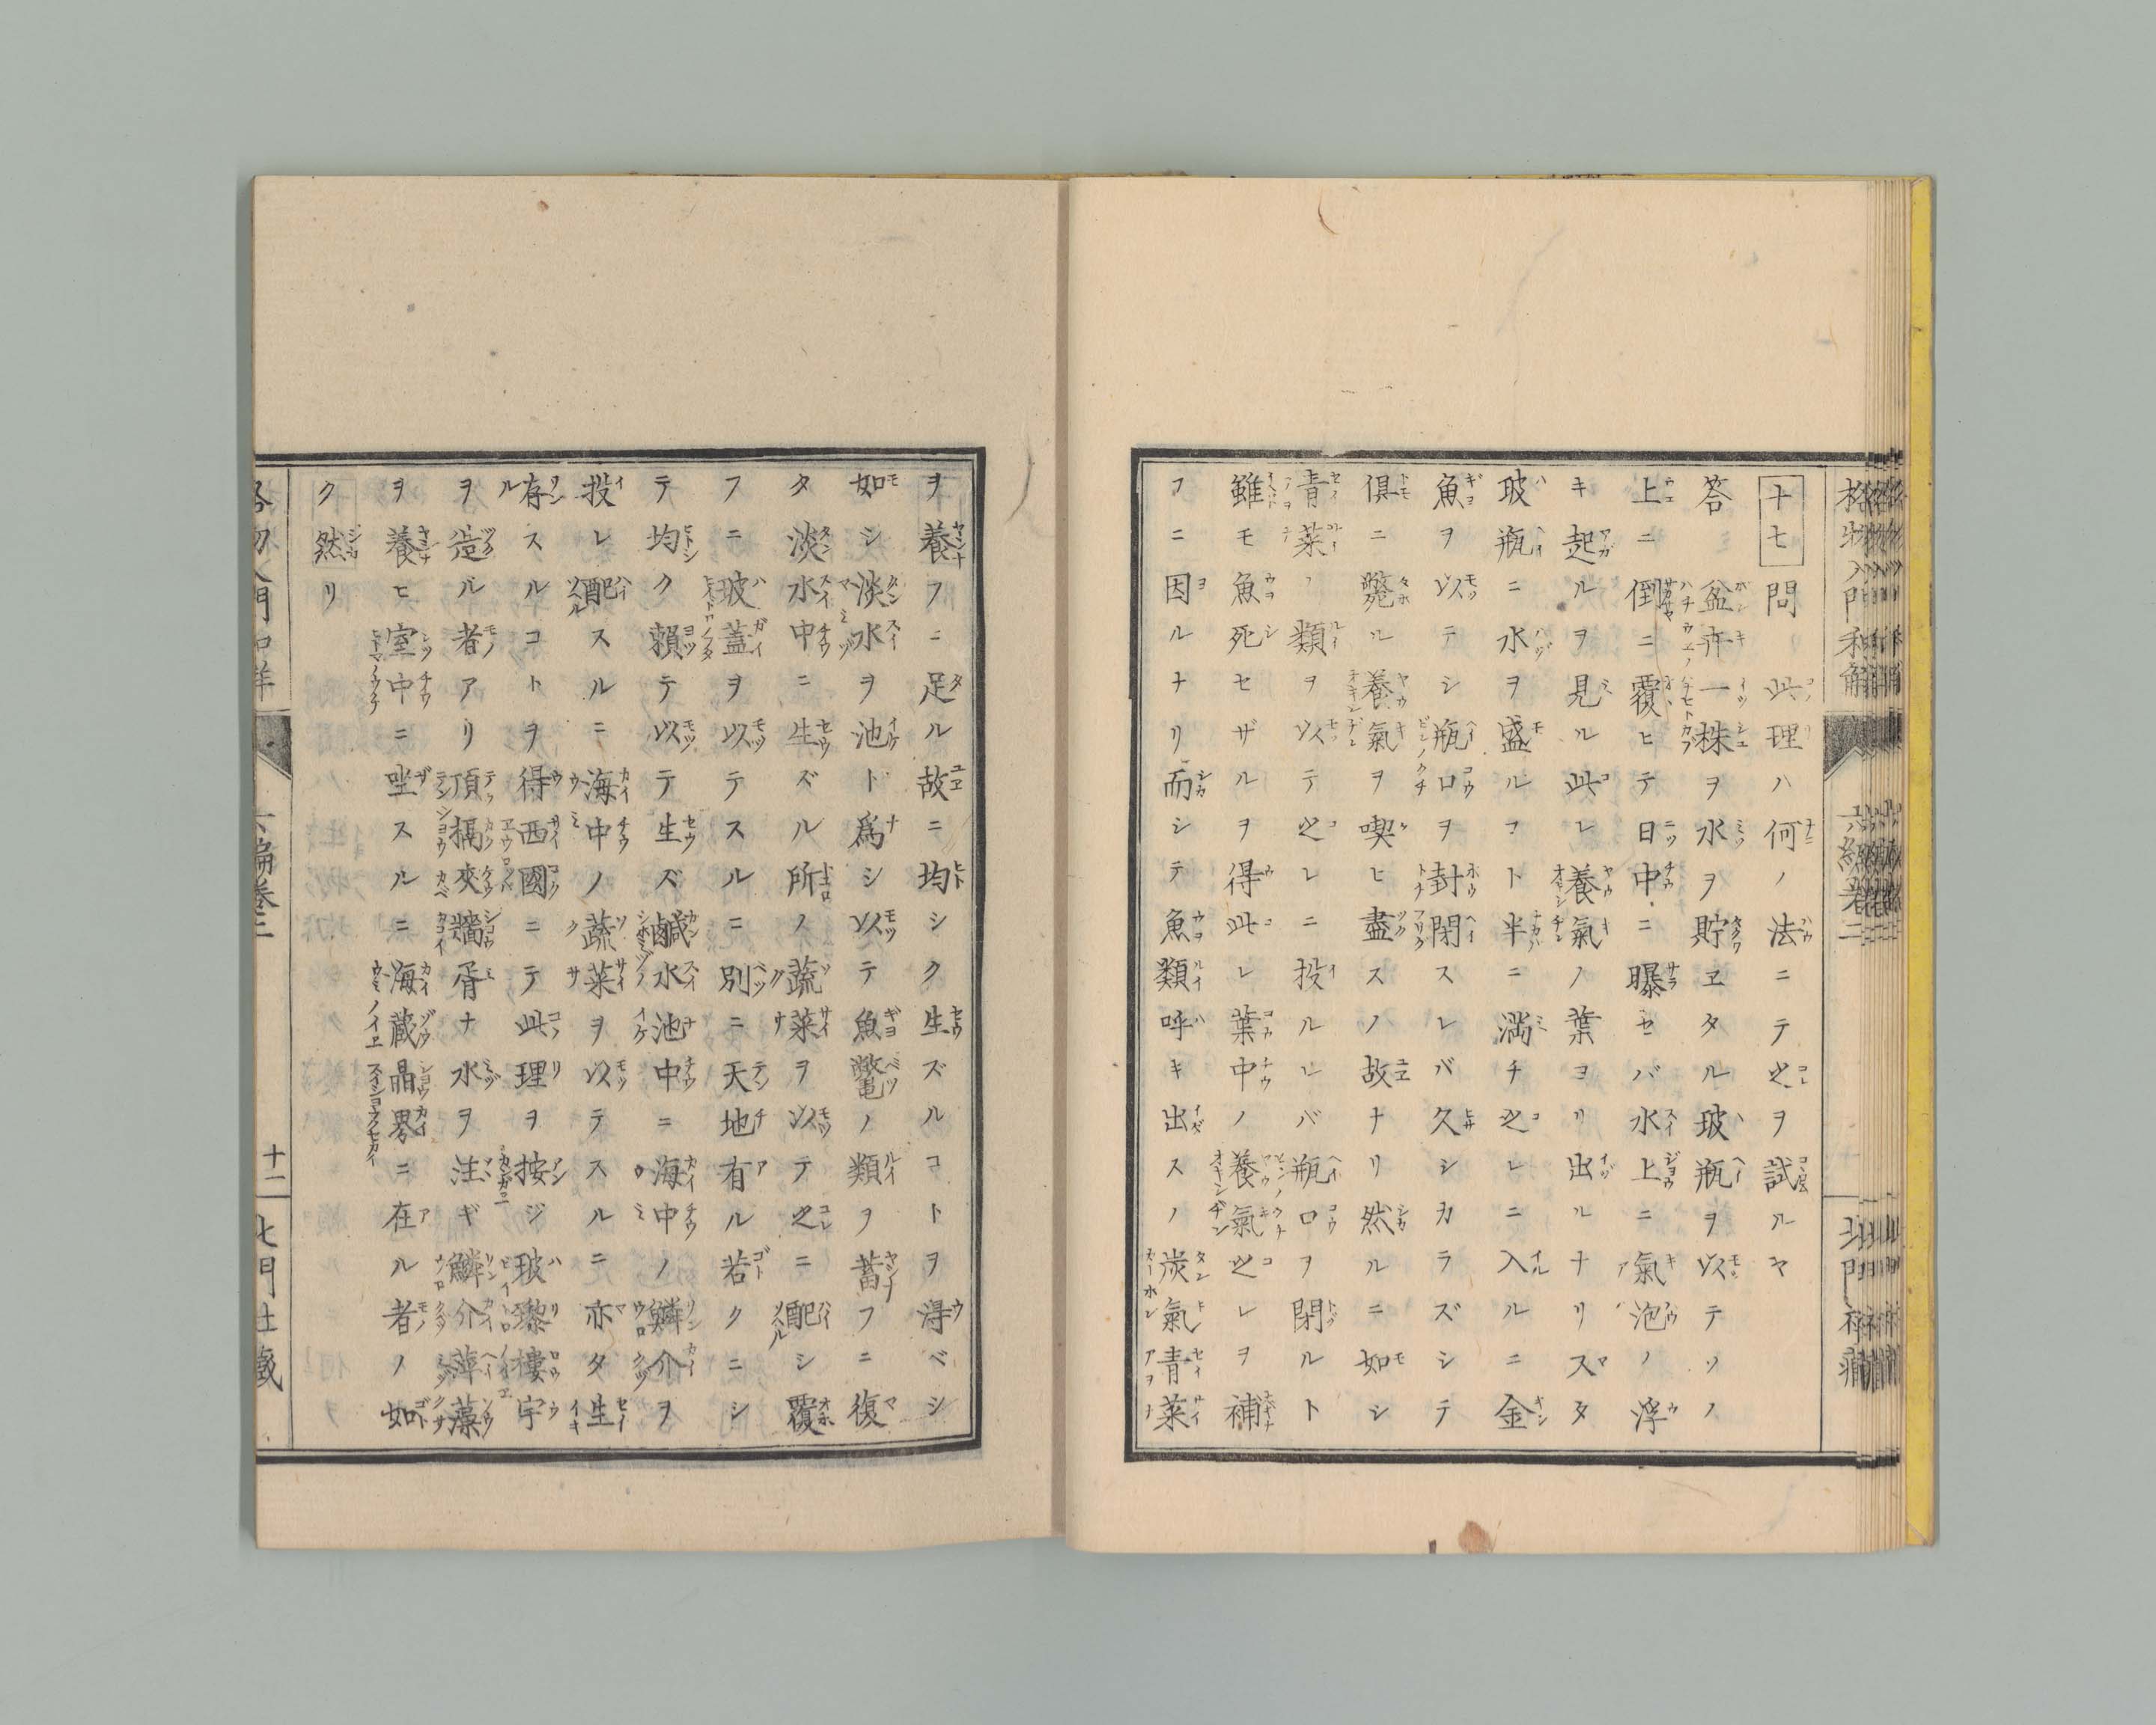 十七 問 此理ハ何ノ法ニテ之ヲ試ルヤ
答 盆卉一株ヲ水ヲ貯ヱタル玻瓶ヲ以テソノ
上ニ倒ニ覆ヒテ日中ニ曝セバ水上ニ氣泡ノ浮
キ起ルヲ見ル此レ養氣ノ葉ヨリ出ルナリ又タ
玻瓶ニ水ヲ盛ルコト半ニ満チ之レニ入ルニ金
魚ヲ以テシ瓶口ヲ封閉スレバ久シカラズシテ
倶ニ斃ル養氣ヲ喫ヒ盡スノ故ナリ然ルニ如シ
青菜ノ類ヲ以テ之レニ投ルレバ瓶口ヲ閉ルト
雖モ魚死セザルヲ得此レ葉中ノ養氣之レヲ補
フニ因ルナリ而シテ魚類呼キ出スノ炭氣青菜
ヲ養フニ足ル故ニ均シク生ズルコトヲ得ベシ
如シ淡水ヲ池ト爲シ以テ魚鼈ノ類ヲ蓄フニ復
タ淡水中ニ生ズル所ノ蔬菜ヲ以テ之ニ配シ覆
フニ玻蓋ヲ以テスルニ別ニ天地有ル若クニシ
テ均ク賴テ以テ生ズ鹹水池中ニ海中ノ鱗介ヲ
投レ配スルニ海中ノ蔬菜ヲ以テスルニ亦タ生
存スルコトヲ得西國ニテ此理ヲ按ジ玻瓈樓宇
ヲ造ル者アリ頂槅夾牆胥ナ水ヲ注ギ鱗介萍藻
ヲ養ヒ室中ニ坐スルニ海蔵晶界ニ在ル者ノ如
ク然リ
十二